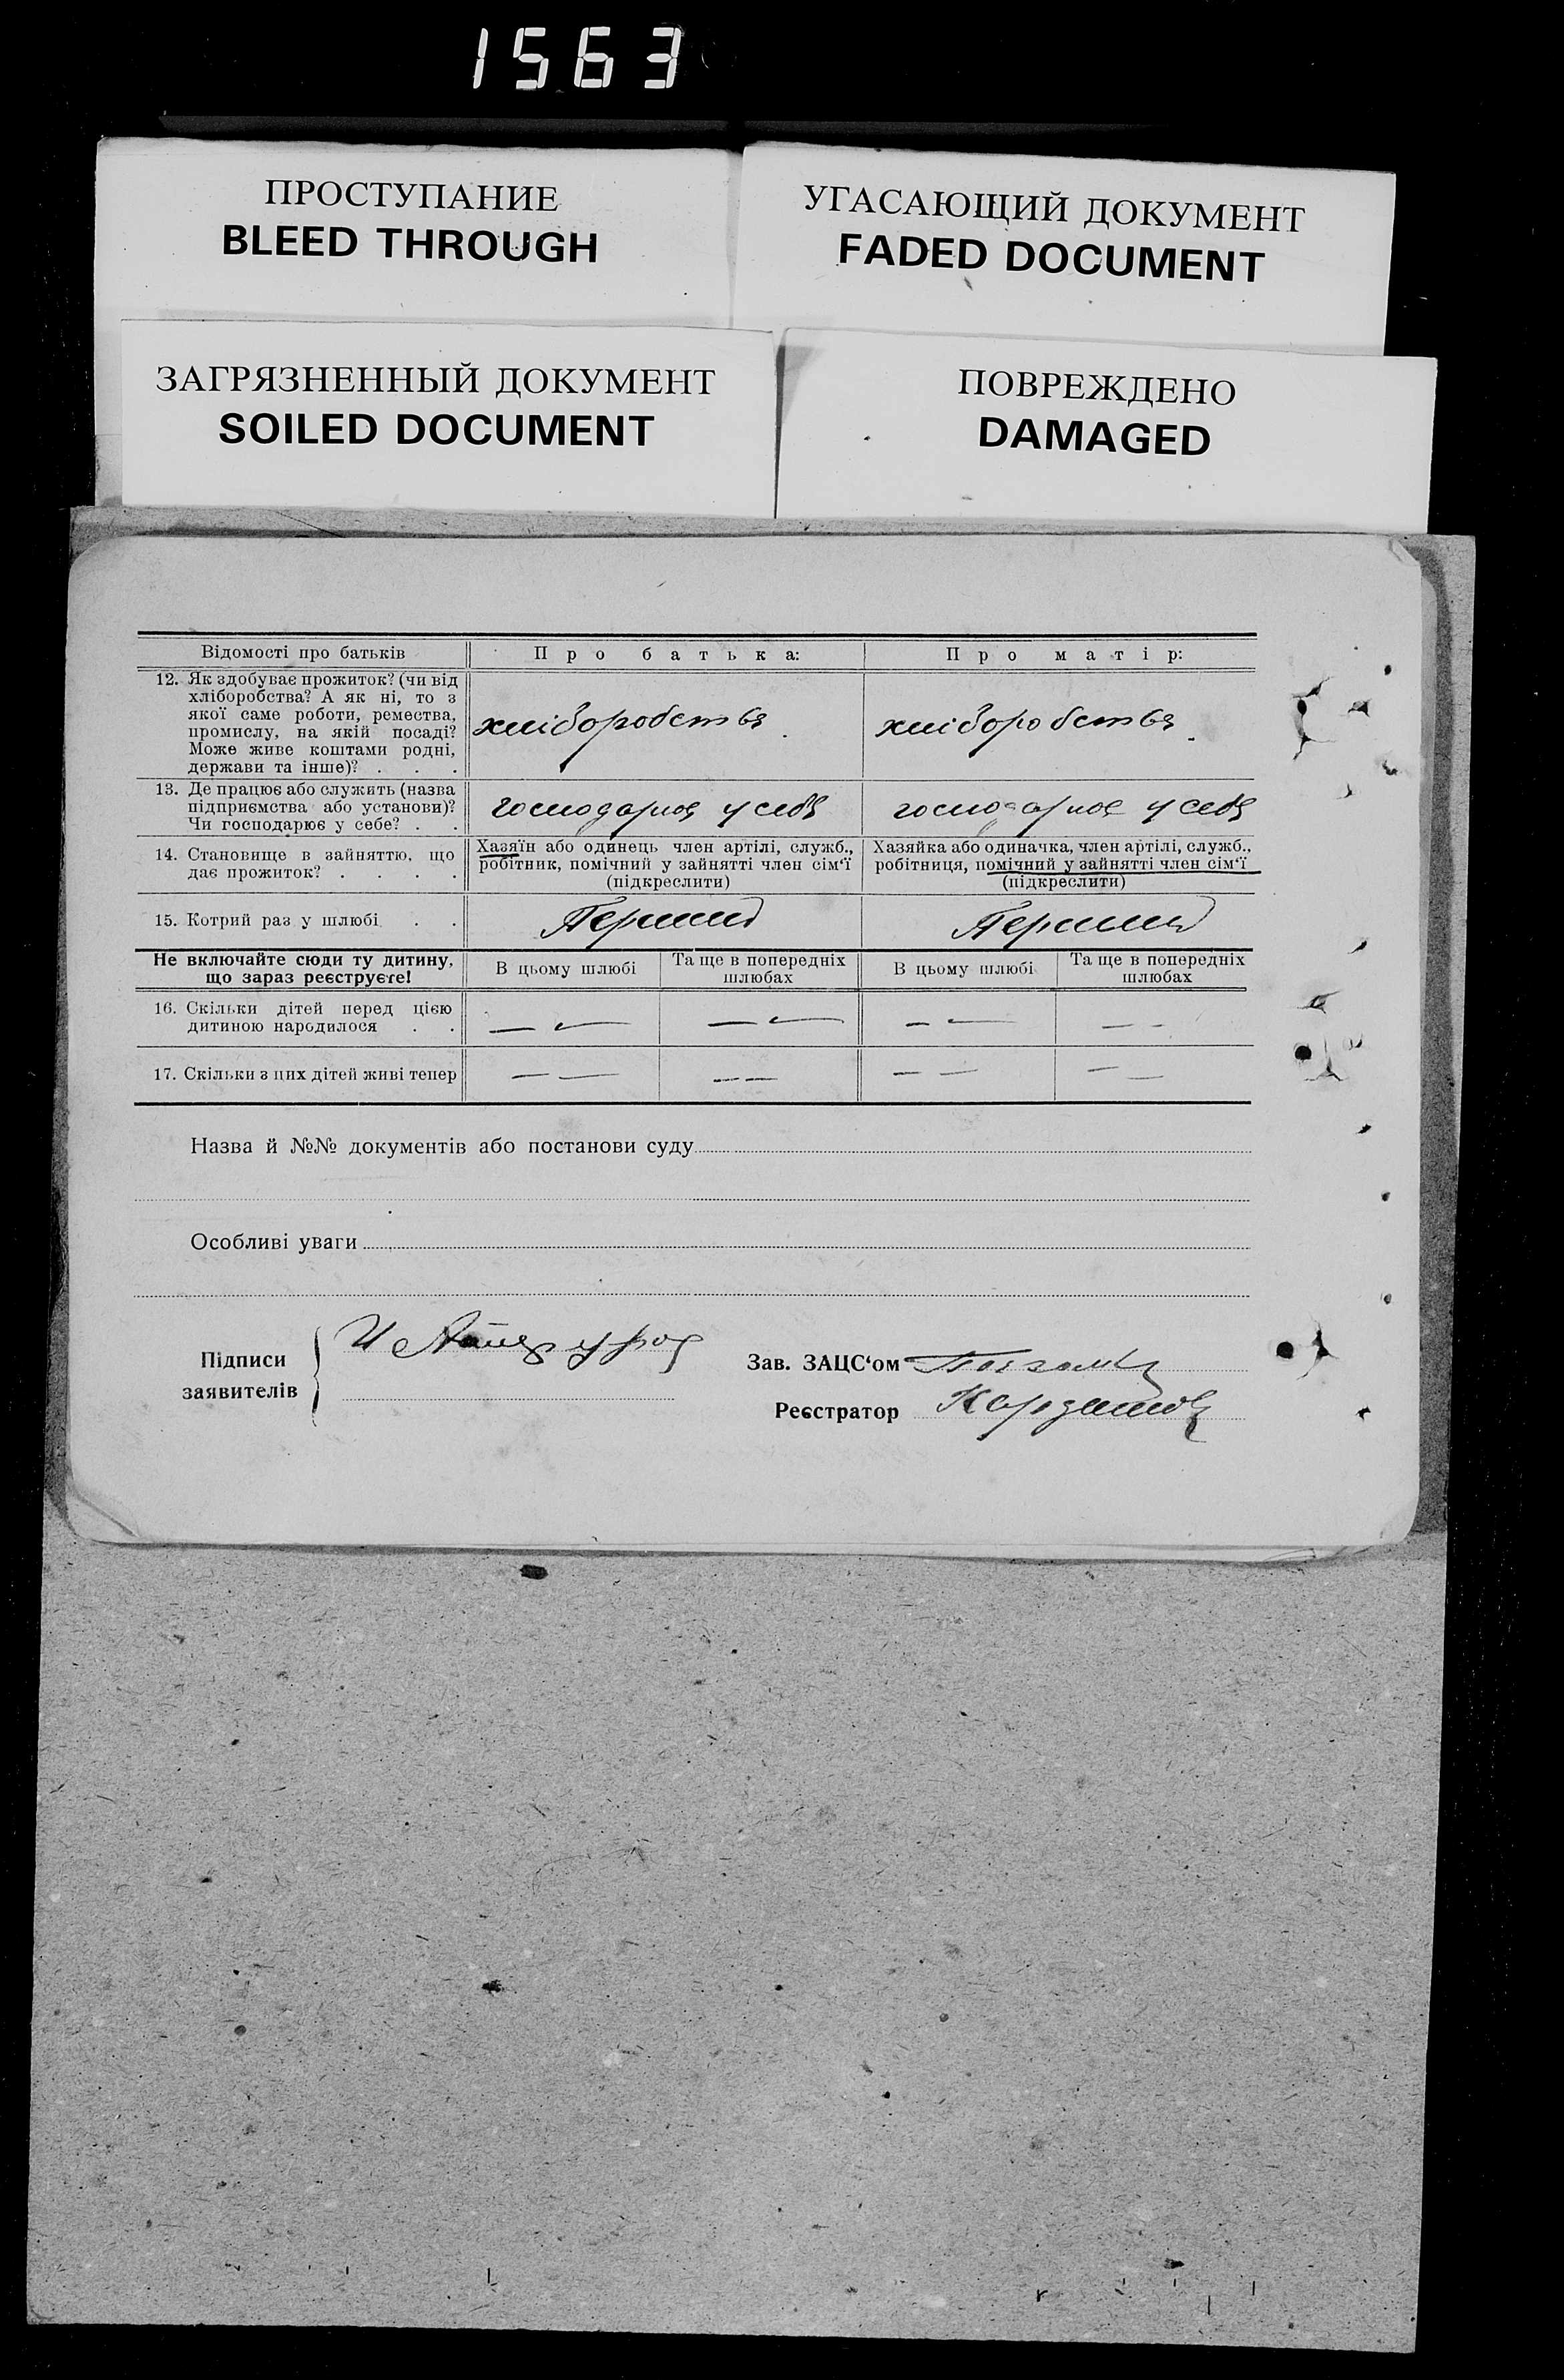 1563
ПРОСТУПАНИЕ
BLEED THROUGH
УГАСАЮЩИЙ ДОКУМЕНТ
FADED DOCUMENT
ЗАГРЯЗНЕННЫЙ ДОКУМЕНТ
SOILED DOCUMENT
ПОВРЕЖДЕНО
DAMAGED
Відомості про батьків
Про батька:
Про матір:
12. Як здобуває прожиток? (чи від
хліборобства? А як ні, то з
якої саме роботи, ремества,
промислу, на якій посаді?
Може живе коштами родні,
держави та інше)? . . .
хліборобства
хліборобства
13. Де працює або служить (назва
підприємства або установи)?
Чи господарює у себе? . .
господарює у себе
господарює у себе
14. Становище в зайняттю, що
дає прожиток? . . . .
Хазяїн або одинець член артілі, служб.,
робітник, помічний у зайнятті член сім‘ї
(підкреслити)
Хазяйка або одиначка, член артілі, служб.,
робітниця, помічний у зайнятті член сім‘ї
(підкреслити)
15. Котрий раз у шлюбі . .
Перший
Перший
Не включайте сюди ту дитину,
що зараз реєструєте!
В цьому шлюбі
Та ще в попередніх
шлюбах
В цьому шлюбі
Та ще в попередніх
шлюбах
16. Скільки дітей перед цією
дитиною народилося . .
— —
— —
— —
— —
17. Скільки з цих дітей живі тепер
— —
— —
— —
— —
Назва й №№ документів або постанови суду
Особливі уваги
Підписи
заявителів
Зав. ЗАЦС‘ом
Реєстратор